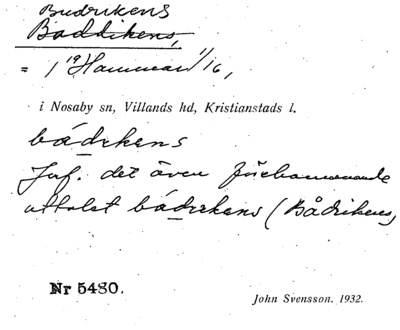 Budrikens
Baddikens,
= 1 19 Hammar 1/16,
i Nosaby sn, Villands hd, Kristianstads l.
bådrkens
Jnf. det även förekommande
uttalet bádrkens (Bådrikens,
Nr 5480.
John Svensson. 1932.